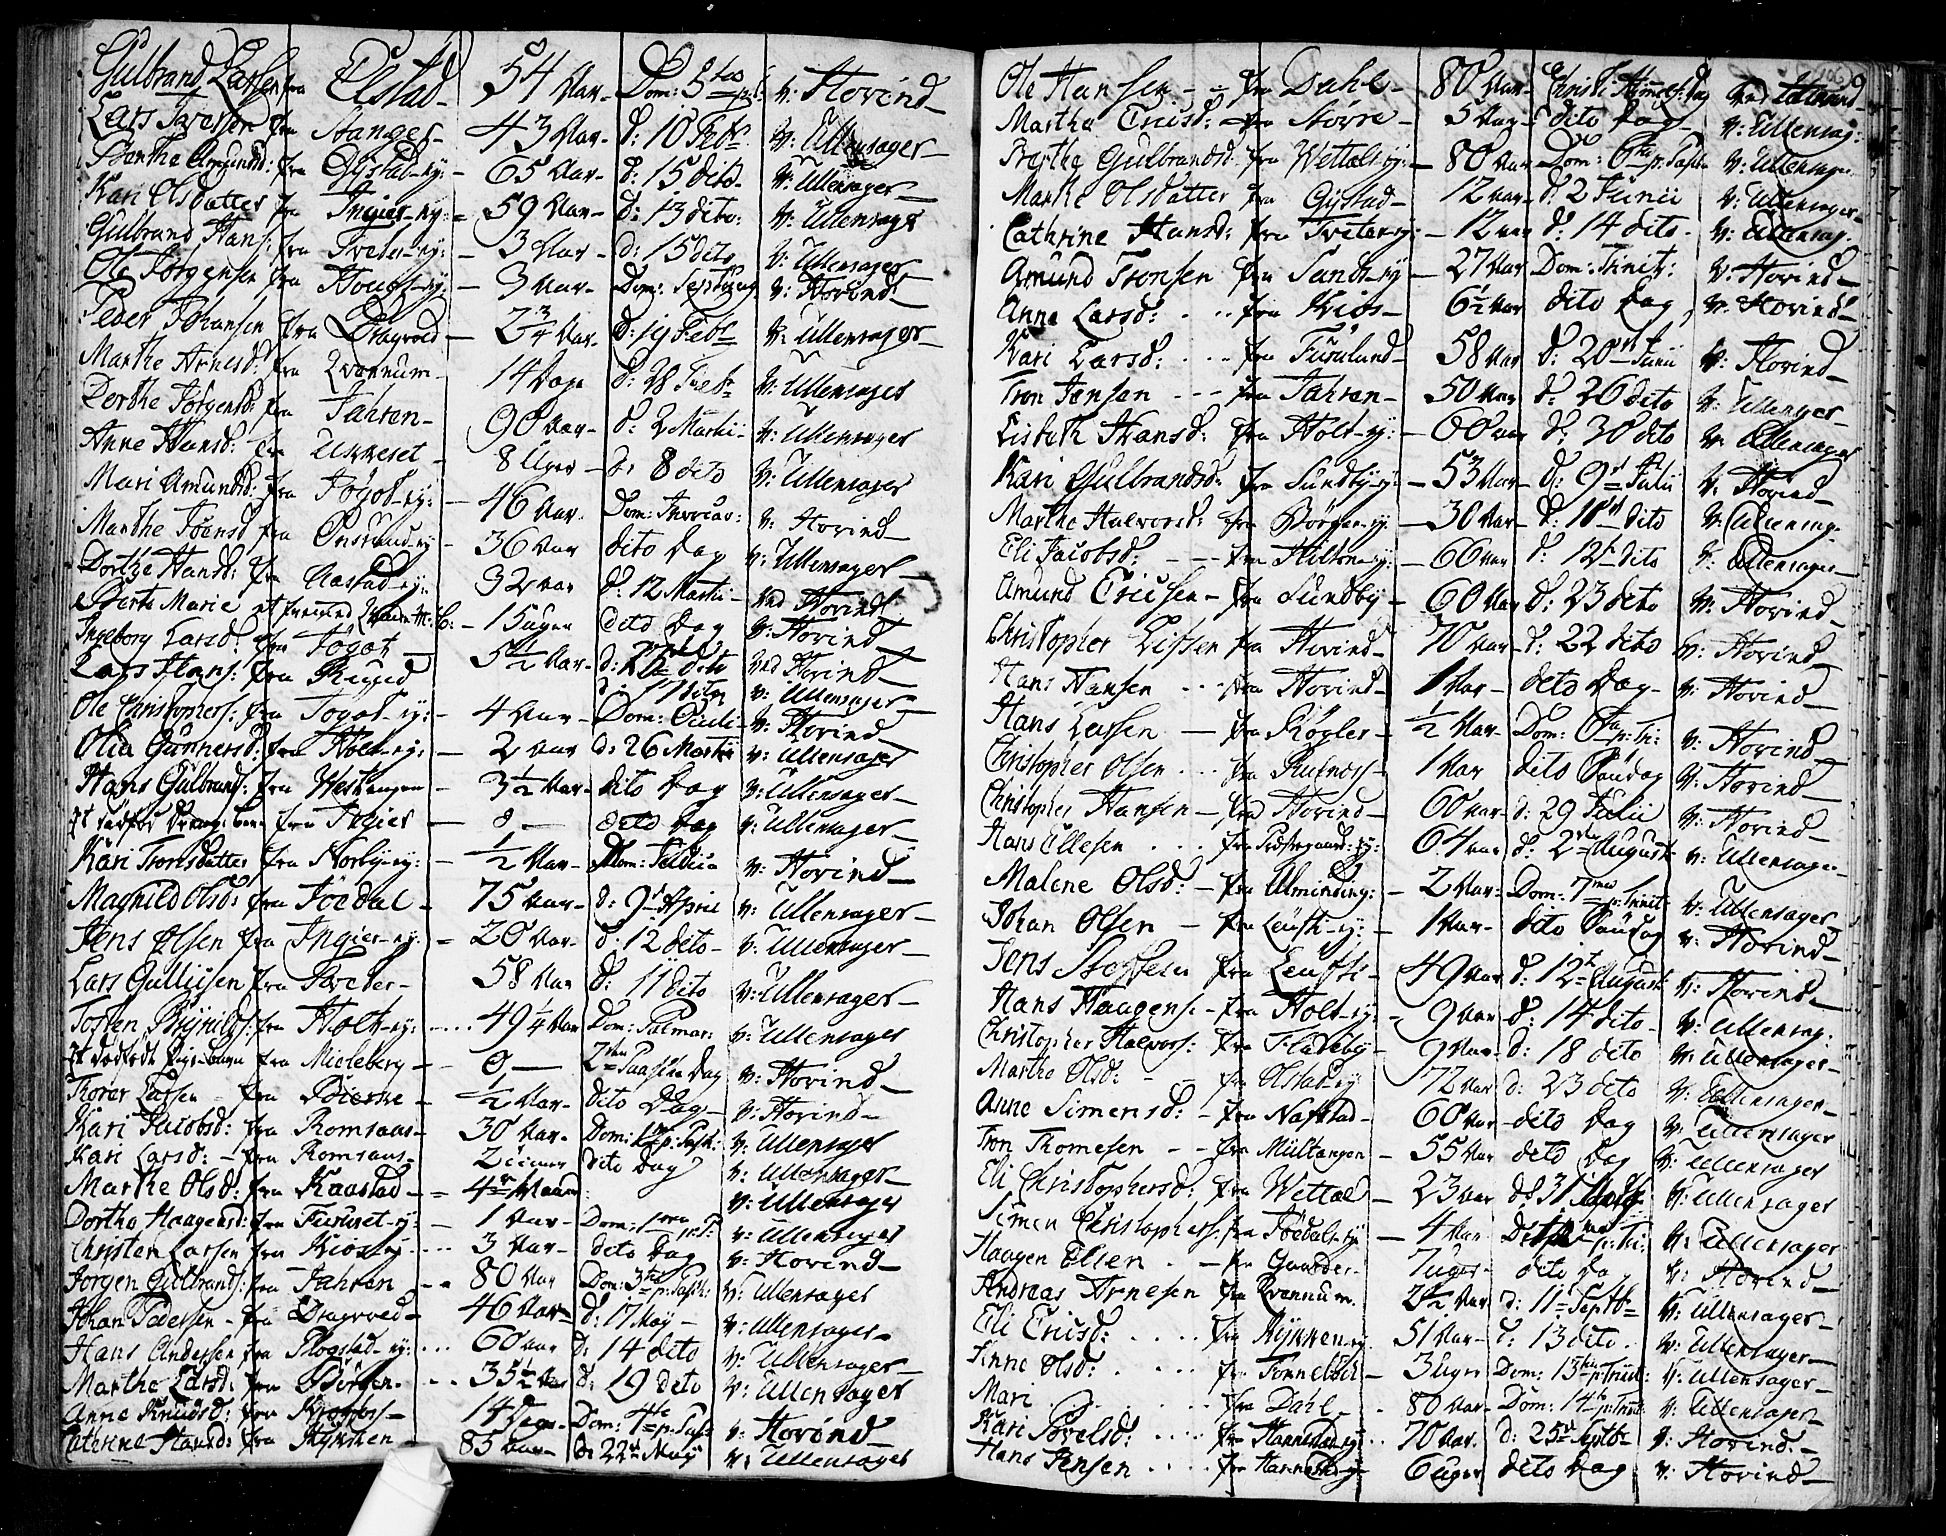 Gulbrand Larsen fra Elstad 54 Aar Dom: 5 v: Hovind
Lars Iversen fra Stanger 43 Aar d: 10 Febr v: Ullensager
Berthe Amunds: fra Gystad-ey: 65 Aar d: 15 dito v: Ullensager
Kari Olsdatter fra Ingier-ey: 59 Aar d: 13 dito: v: Ullensager
Gulbrand Hans: fra Tveter-ey: 3 Aar d: 15 dito v: Ullensager
Ole Jørgensen fra Houg-ey: 3 Aar Dom: v: Hovind
Peder Johansen fra Dragvold 2 3/4 Aar d: 19 Febr v: Ullensager
Marthe Arnesd: fra Qvannum 14 Dage d: 28 Febr v: Ullensager
Berthe Jørgensd: fra Jahren 90 Aar d: 2 Martii v: Ullensager
Anne Hansd: fra Ukkeset 8 Uger d: 8 dito v: Ullensager
Mari Amundsd: fra Jøgot-ey: 46 Aar Dom: Invocav: v: Hovind
Marthe Joensd fra -ey 36 Aar dito Dag v: Ullensager
Dorthe Hansd: fra Aastad-ey: 32 Aar d: 12 Martii ved Hovind
Berte Marie et 15 uger dito Dag v: Hovind
Ingeborg Larsd: fra Jøgot 5 1/2 Aar d: dito ved Hovind
Lars Hans: fra Ruud d: 17 dito v: Ullensager
Ole Christophers: fra Jogot-ey: 4 Aar Dom: Oculi v: Hovind
Olia Gunnersd: fra -ey: 2 Aar d: 26 Martii v: Ullensager
Hans Gulbrands: fra Westengen 3 1/2 Aar dito Dag v: Ullensager
Et dødfød Drenge barn fra Ingier 0 dito Dag v: Ullensager
Kari Tronsdatter fra Norby-ey: 1/2 Aar Dom: v: Hovind
Magnild Olsd: fra Jødal 75 Aar d: 9 April v: Ullensager
Jens Olsen fra Ingier-ey: 20 Aar d: 12 dito v: Ullensager
Lars Gulliksen fra Tveter 58 Aar d: 11 dito v: Ullensager
Tosten Brynilds: fra Holt-ey: 49 1/4 Aar Dom: Palmar: v: Ullensager
Et dødfødt Pige-barn fra Micleberg 0 2den Paaske Dag v: Hovind
Thorer Larsen fra Bierke 1/2 Aar dito Dag v: Hovind
Kari Jacobsd: fra Romsaas 30 Aar Dom: 1 p: Pask: v: Ullensager
Kari Larsd: fra Romsaas 2 dito Dag v: Ullensager
Marthe Olsd: fra Kaastad 4 v: Ullensager
Dorthe Haagensd: fra Furuset-ey: 1 Aar Dom: v: Ullensager
Christen Larsen fra Kios-ey: 3 Aar dito Dag v: Hovind
Jørgen Gulbrands: fra Jahren 80 Aar Dom: 3 p: Pasch: v: Ullensager
Johan Pedersen fra Dragvold 46 Aar d: 17 May v: Ullensager
Hans Andersen fra Plogstad-ey: 60 Aar d: 14 dito v: Ullensager
Marthe Larsd: fra Børgen 35 1/2 Aar d: 19 dito v: Ullensager
Anne Knudsd: fra 14 Dage Dom: 4 p: Pasc: v: Hovind
Cathrine Hansd: fra Rykken 85 Aar d: 22 May v: Ullensager
Ole Hansen fra Dahl 80 Aar Christi Himelf: Dag ved Hovind
Martha Ericsd: fra Støvre 5 dito Dag v: Ullensag:
Berthe Gulbrandsd fra Wettals-ey: 80 Aar Dom: 6 p: Pasc v: Ullensager
Marthe Olsdatter fra Gystad 12 Aar d: 2 Junii v: Ullensager
Cathrine Hansd: fra Tveter-ey: 12 d: 14 dito v: Ullensag:
Amund Tronsen fra Sand-ey 27 Aar Dom: Trinit: v: Hovind
Anne Larsd: fra Kios 6 1/2 Aar dito Dag v: Hovind
Kari Larsd: fra Furulund 58 Aar d: 20 Junii v: Hovind
Tron Jensen fra Jahren 50 Aar d: 26 dito v: Ullensager
Lisbeth Hansd: fra Holt-ey: 60 Aar d: 30 dito v: Ullensager
Kari Gulbrandsd: fra Sundby-ey: 53 Aar d: 9 Julii v: Hovind
Marthe Halvorsd: fra Børgen-ey: 30 Aar d: 10 dito v: Ullensag:
Eli Jacobsd: fra Hilton-ey: 66 Aar d: 12 dito v: Ullensager
Amund Ericsen fra Sundby 60 Aar d: 23 dito v: Hovind
Christopher Leifsen fra Hovind 70 Aar d: 22 dito v: Hovind
Hans Hansen fra Hovind 1 Aar dito Dag v: Hovind
Hans Larsen fra Køgler 1/2 Aar Dom: 6 p: Tri: v: Hovind
Christopher Olsen fra Rutness 1 Aar dito Søndag v: Hovind
Christopher Hansen fra Hovind 60 Aar d: 29 Julii v: Hovind
Hans Ellesen fra Præstegaards-ey: 64 Aar d: 2 August v: Ullensager
Malene Olsd: fra Alminding: 2 Aar: Dom: 7 p: Trinit v: Ullensager
Johan Olsen fra -ey: 1 Aar dito Søndag v: Hovind
Jens Stoffersen fra 49 Aar d: 12 August v: Hovind
Hans Haagens: fra Holt-ey: 9 Aar d: 14 dito v: Ullensag:
Christopher Halvors: fra Fladeby 9 Aar d: 18 dito v: Ullensager
Marthe Olsd: fra Olstad-ey 72 Aar d: 23 dito v: Ullensager
Anne Simensd: fra Nafstad 60 Aar dito Dag v: Ullensager
Tron Thomesen fra Multangen 55 Aar dito Dag v: Ullensager
Eli Christophersd: fra Wettal 23 Aar d: 31 v: Ullensager
Simen Christophers: fra Jødals-ey 4 Aar v: Ullensager
Haagen Ellsen fra Gaarder 7 uger dito Dag v: Hovind
Andreas Arnesen fra Qvannum. 2 1/2 Aar d: 11 Septb v: Ullensager
Eli Ericsd: fra Rykken-ey 51 Aar d: 13 dito v: Ullensager
Anne Olsd: fra 3 uger Dom: 13 p: Trinit: v: Ullensager
Mari fra Dahl 80 Aar Dom: 14 p: Trinit: v: Ullensager
Kari Povelsd: fra Hannestad-ey: 70 Aar. d: 25 Septb v: Hovind
Hans Jensen fra Hannestad-ey 6 uger dito Dag v: Hovind